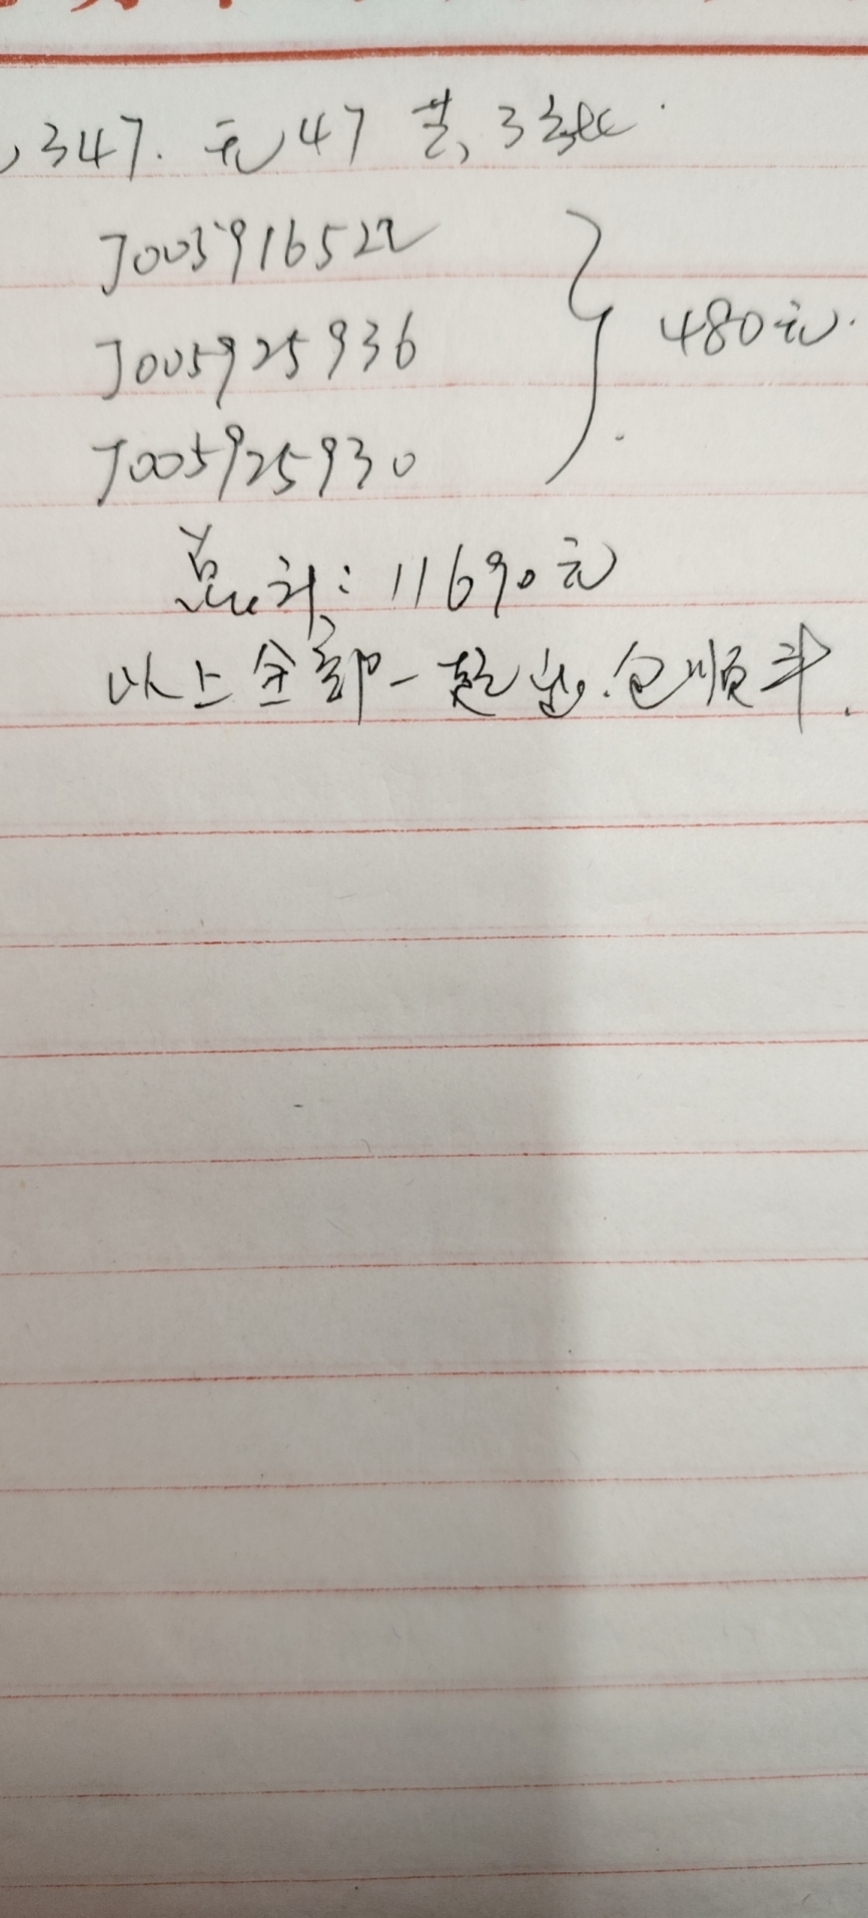 347. 无47 芒, 3张
J005916522
J005925936
J005925930
480元.
总计: 11690元
以上全部一起 . 包顺丰.